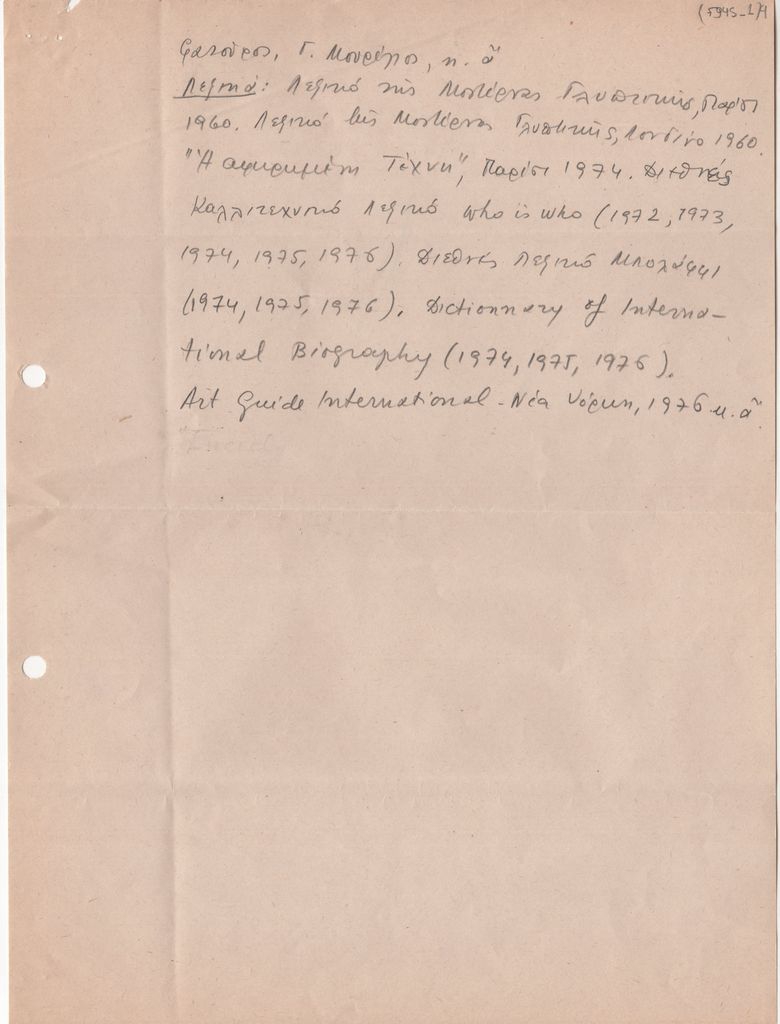 (5945_1/4
Φατούρος, Γ. Μουρέλος, κ. ἄ
Λεξικά: Λεξικό τῆς Μοντέρνας Γλυπτικῆς, Παρίσι
1960. Λεξικό τῆς Μοντέρνας Γλυπτικῆς, Λονδίνο 1960.
"Ἡ αφηρημένη Τέχνη", Παρίσι 1974. Διεθνές
Καλλιτεχνικό Λεξικό Who is Who (1972, 1973,
1974, 1975, 1976). Διεθνές Λεξικό Μπολάφφι
(1974, 1975, 1976). Dictionnary of Interna-
tional Biography (1974, 1975, 1976).
Art Guide International - Νέα Υόρκη, 1976 κ. ἄ.